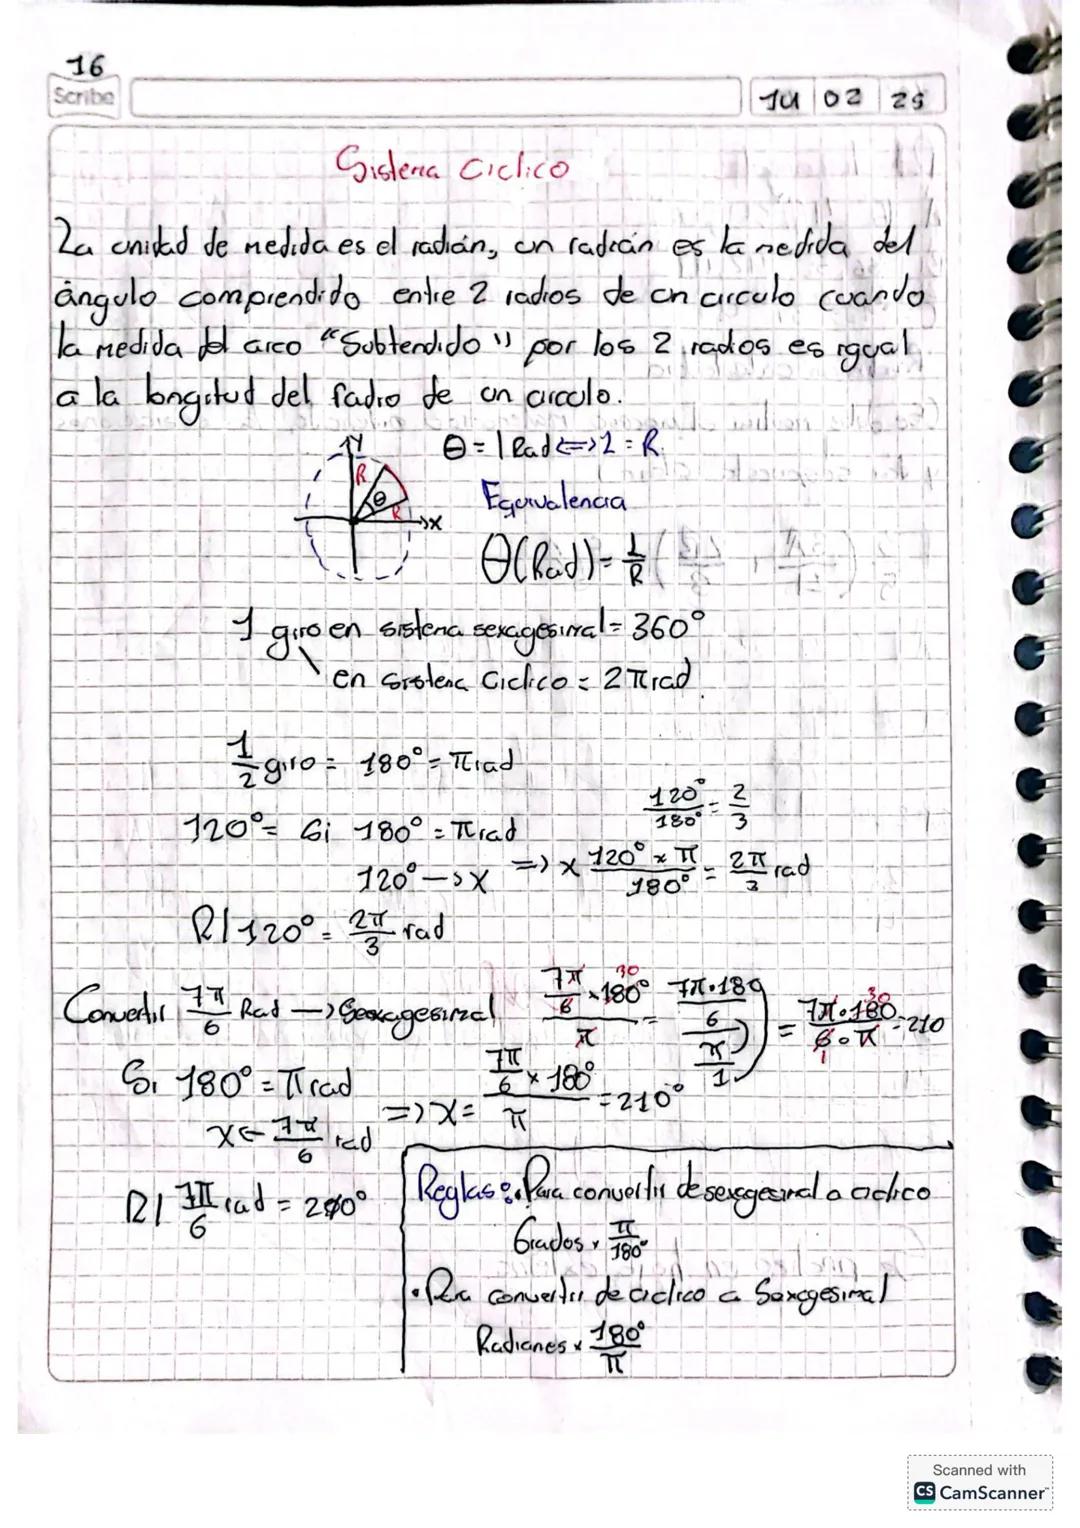 16
Scribe
14 02 25
Sistema Ciclico
La unidad de medida es el radián, un radián es la medida del
ángulo comprendido entre 2 radios de un circulo cuando
la medida del arco "Subtendido" por los 2 radios es igual
a la longitud del radio de un circulo.
Y θ = 1 Rad <=> L = R
R θ R X
Equivalencia
θ(Rad) = L/R
1 giro en sistema sexagesimal = 360°
en sistema Ciclico = 2πrad
1/2 giro = 180° = πrad
120° = Si 180° = πrad
120°/180° = 2/3
120° → x => x 120° x π/180° = 2π/3 rad
R/ 120° = 2π/3 rad
Convertir 7π/6 Rad → Sexagesimal
7π/6 x 180° 30/π = 7π·180/6/π/1 = 7π·180 30/6·π 1 = 210
Si 180° = π rad
x ← 7π/6 rad => x = 7π/6 x 180°/π = 210°
R/ 7π/6 rad = 210°
Reglas: • Para convertir de sexagesimal a ciclico
Grados x π/180°
• Para convertir de ciclico a Sexagesimal
Radianes x 180°/π
Scanned with
CS CamScanner